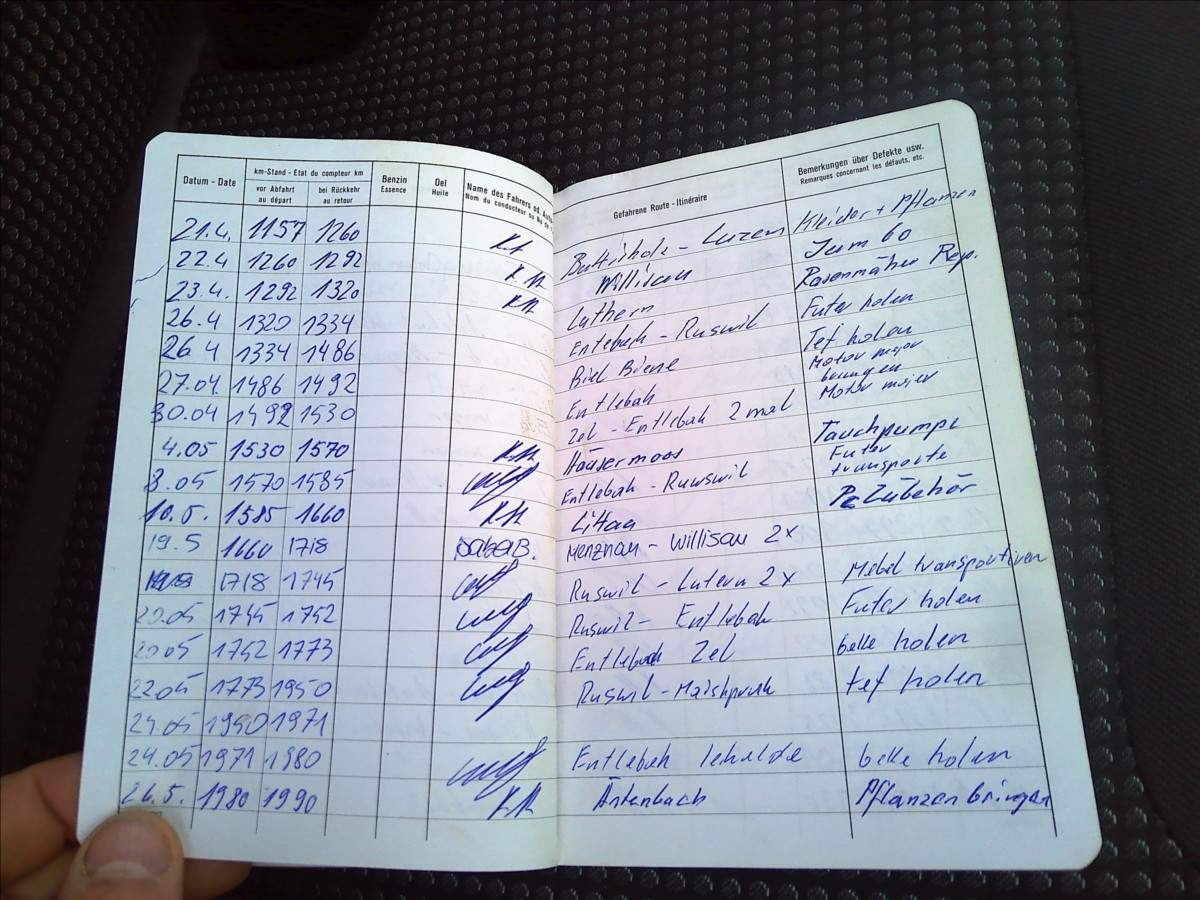 Datum - Date km-Stand - Etat du compteur km Benzin Oel Name des Fahrers od.
vor Abfahrt bei Rückkehr Essence Huile Nom du conducteur ou
au départ au retour
Gefahrene Route - Itinéraire
Bemerkungen über Defekte usw.
Remarques concernant les défauts, etc.
21.4. 1157 1260 Luzern Kleider + Pflanzen
22.4 1260 1292 Willisau Jumbo
23.4. 1292 1320 Luthern Rasenmäher Rep.
26.4 1320 1334 Entlebuh - Ruswil Futer holen
26.4 1334 1486 Biel Biene Tef holen
27.04 1486 1492 Entlebah Motor
30.04 1492 1530 Zel - Entlebuh 2 mal Motor
4.05 1530 1570 Häusermoos Tauchpumpe
8.05 1570 1585 Entlebah - Ruswil Futer
transporte
10.5. 1585 1660 Littau Zubehör
19.5 1660 1718 Menznau - Willisau 2x
1718 1745 Ruswil - Lutern 2x Mebel transportiren
20.05 1745 1752 Ruswil - Entlebah Futer holen
20.05 1752 1773 Entlebuch Zel belle holen
22.05 1773 1950 Ruswil - tef holen
24.05 1950 1971
24.05 1971 1980 Entlebah belle holen
26.5. 1980 1990 Äntenbach Pflanzen bringen